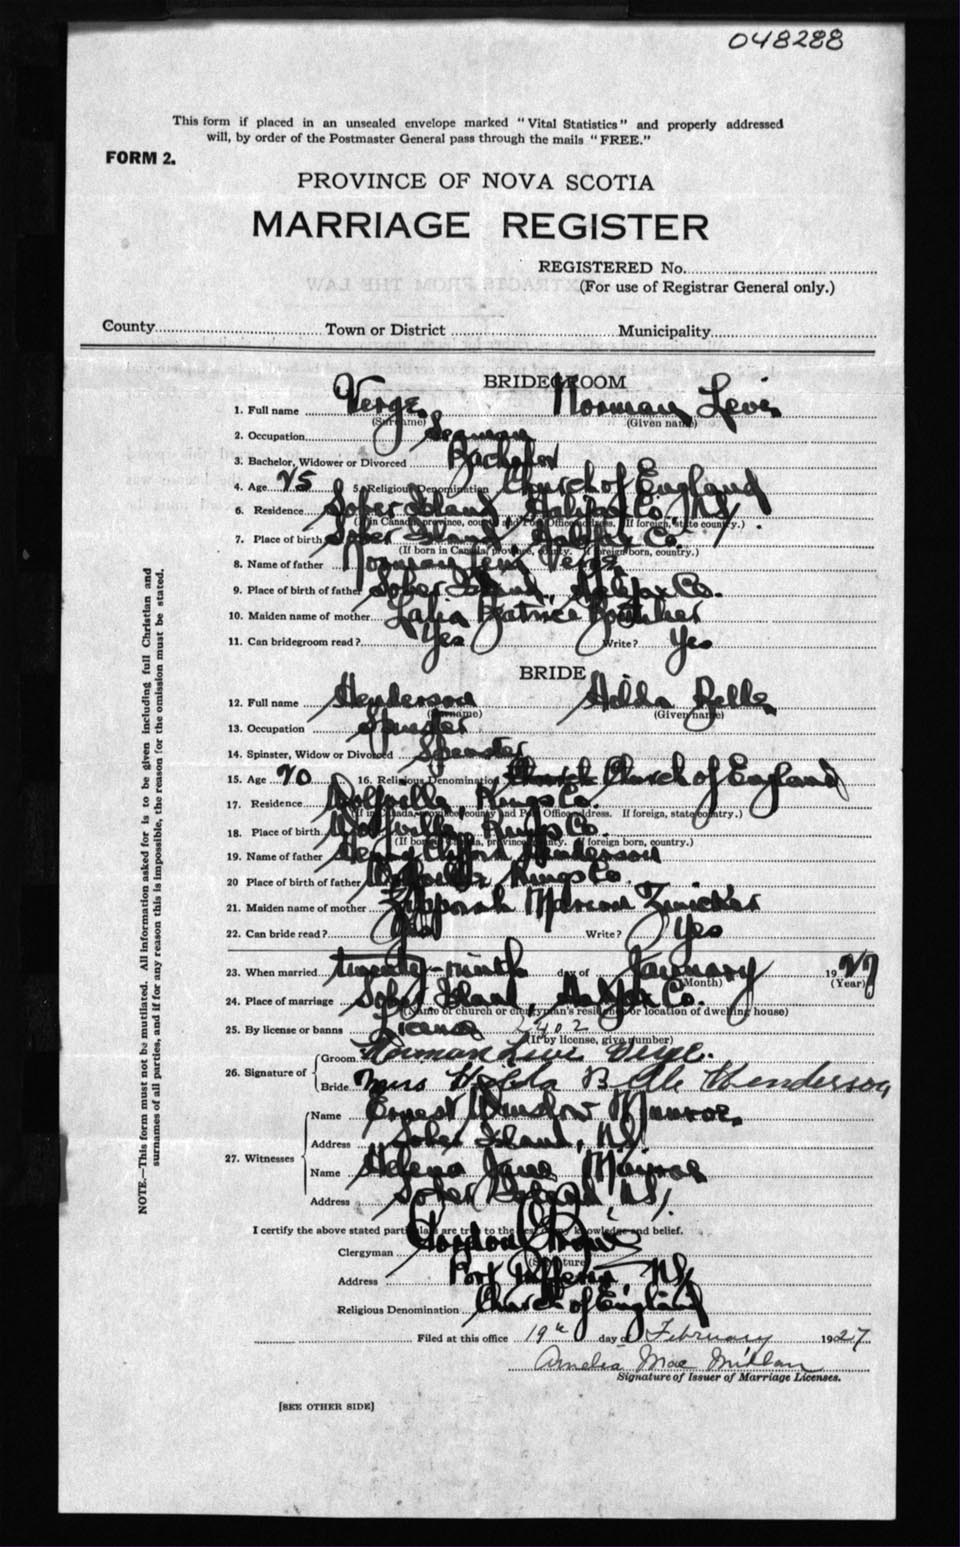 048288
This form if placed in an unsealed envelope marked "Vital Statistics" and properly addressed
will, by order of the Postmaster General pass through the mails "FREE."
FORM 2.
PROVINCE OF NOVA SCOTIA
MARRIAGE REGISTER
REGISTERED No.
(For use of Registrar General only.)
County Town or District Municipality
BRIDEGROOM
1. Full name Verge Norman Levi
(Surname) (Given name)
2. Occupation Seaman
3. Bachelor, Widower or Divorced Bachelor
4. Age 25 5. Religious Denomination Church of England
6. Residence Sober Island, Halifax Co., N.S.
(If in Canada, province, county and Post Office address. If foreign, state country.)
7. Place of birth Sober Island, Halifax Co.
(If born in Canada, province, county. If foreign born, country.)
8. Name of father Norman Levi Verge
9. Place of birth of father Sober Island, Halifax Co.
10. Maiden name of mother Beatrice Boutilier
11. Can bridegroom read? Yes Write? Yes
BRIDE
12. Full name Henderson Hilda Belle
(Surname) (Given name)
13. Occupation Spinster
14. Spinster, Widow or Divorced Spinster
15. Age 20 16. Religious Denomination Church Church of England
17. Residence Wolfville, Kings Co.
(If in Canada, province, county and Post Office address. If foreign, state country.)
18. Place of birth Wolfville, Kings Co.
(If born in Canada, province, county. If foreign born, country.)
19. Name of father Henry Clifford Henderson
20 Place of birth of father Wolfville Kings Co.
21. Maiden name of mother Zipporah Marion Zwicker
22. Can bride read? Yes Write? Yes
23. When married twenty-ninth day of January 1927
(Month) (Year)
24. Place of marriage Sober Island, Halifax Co.
(Name of church or clergyman's residence or location of dwelling house)
25. By license or banns License 2402
(If by license, give number)
26. Signature of Groom Norman Levi Verge.
Bride Mrs Hilda Belle Henderson
27. Witnesses Name Ernest Winslow Munroe
Address Sober Island, N.S.
Name Helena Jane Munroe
Address Sober Island N.S.
I certify the above stated particulars are true to the best of my knowledge and belief.
Clergyman Gordon
(Signature)
Address Port Dufferin, N.S.
Religious Denomination Church of England
Filed at this office 19th day of February 1927
Amelia MacMillan
Signature of Issuer of Marriage Licenses.
[SEE OTHER SIDE]
NOTE.—This form must not be mutilated. All information asked for is to be given including full Christian and
surnames of all parties, and if for any reason this is impossible, the reason for the omission must be stated.